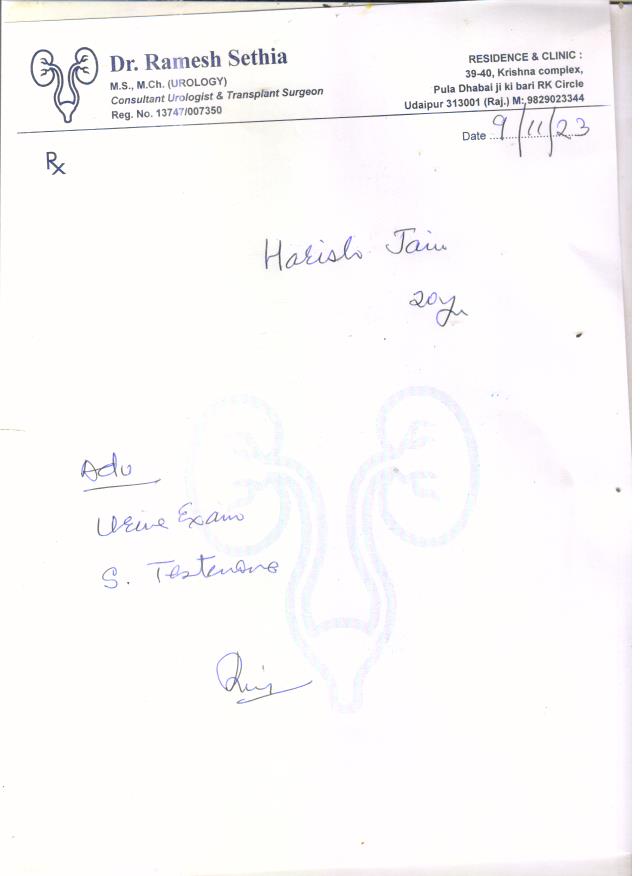 Dr. Ramesh Sethia
M.S., M.Ch. (UROLOGY)
Consultant Urologist & Transplant Surgeon
Reg. No. 13747/007350
RESIDENCE & CLINIC :
39-40, Krishna complex,
Pula Dhabai ji ki bari RK Circle
Udaipur 313001 (Raj.) M: 9829023344
Date 9/11/23
Rx
Harish Jain
20yr
Adv
Urine Exam
S. Testerone